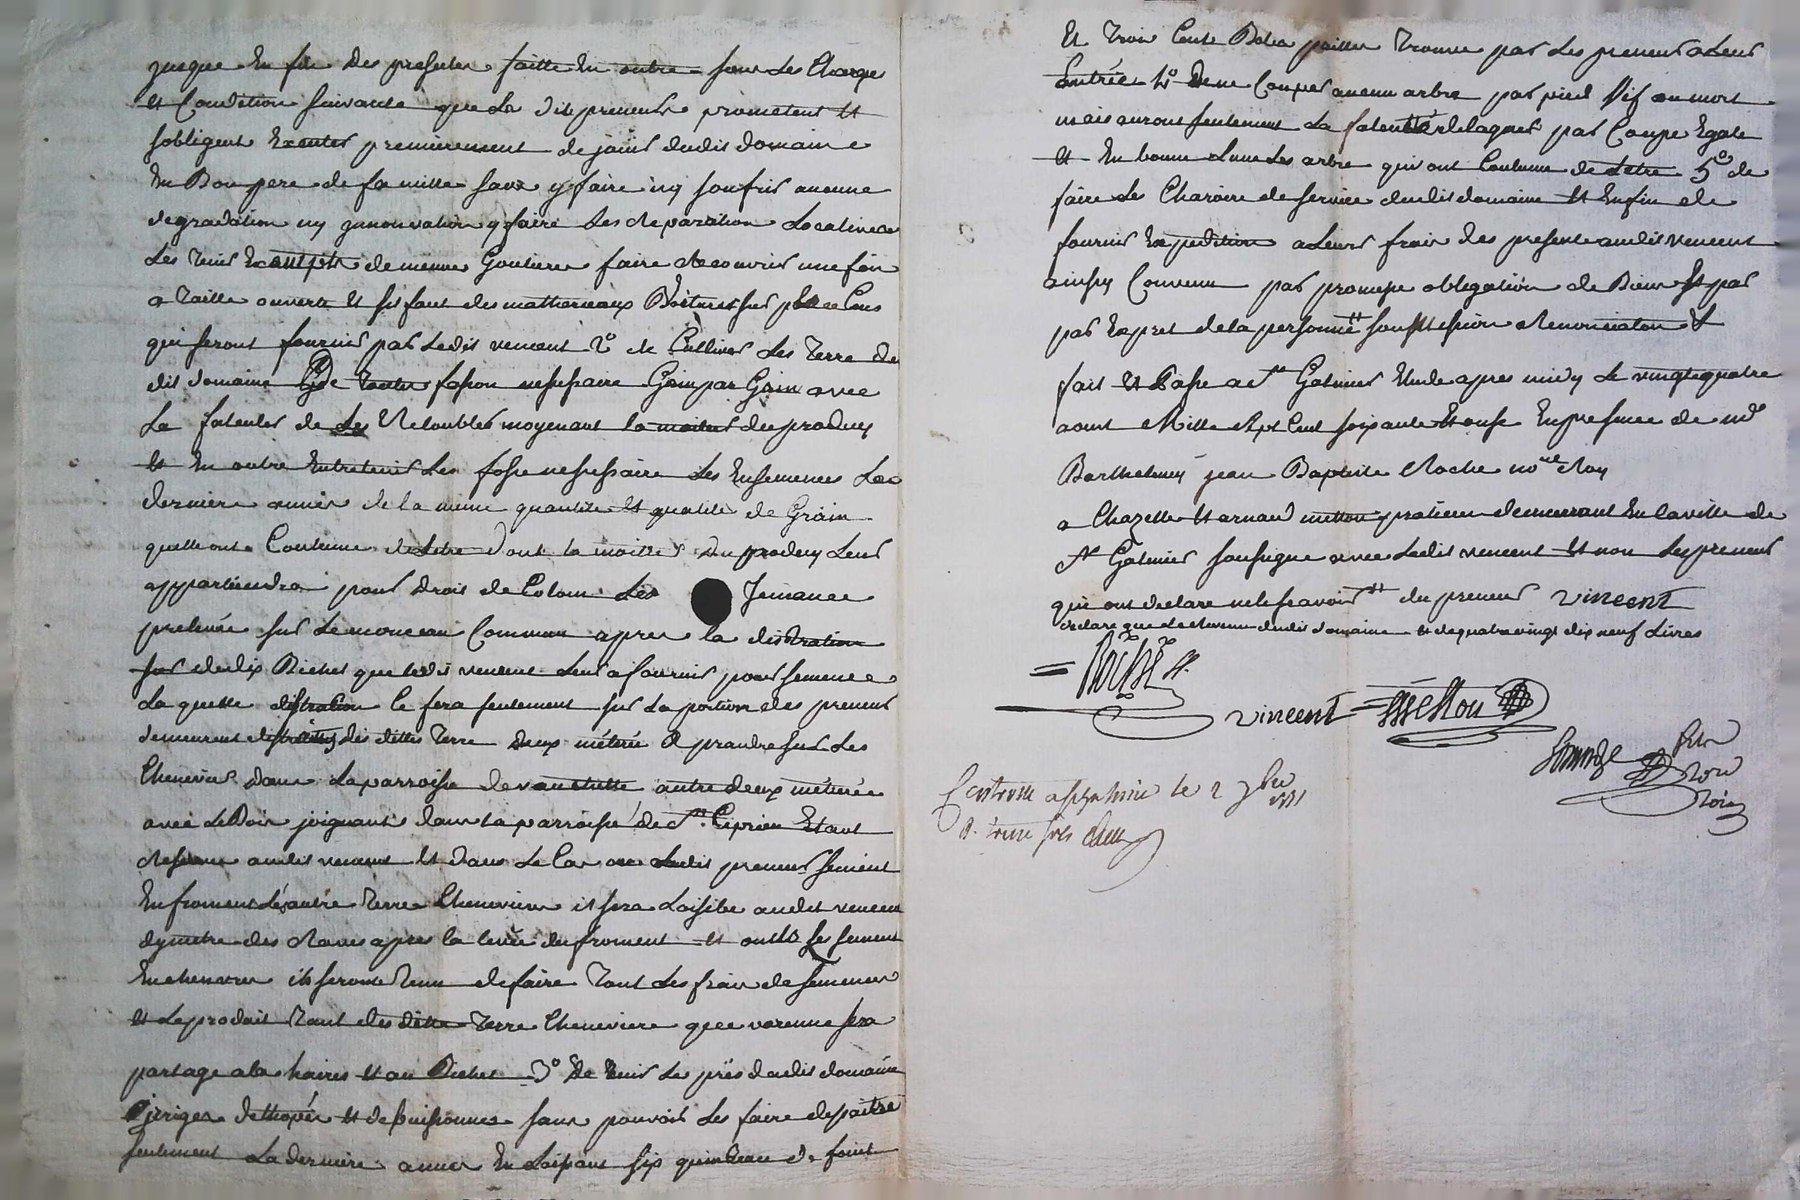 jusque En fin Des presentes faitte En outre sous Les Charges
Et Condition suivante que Les dits preneurs prometent Et
sobligent Exeuter premierement de jouir dudit domaine
En Bon pere de famille sans y faire ny soufrir aucune
degradation ny ynnonvation y faire Les Reparation Locatives
Les Tenir de menue Goutiere faire Recouvrir une fois
a Taille ouverte Et sil faut des matheriaux sur place Ceux
qui seront fournis par Ledit vencent 2o de Cultiver Les Terre du
dit domaine De Toutes fason nessessaire Grain par Grain avec
La faculter de Les Retoubler moyenant la moitie des produy
Et En outre Entretenir Les fosse nessessaire Les Ensemences La
derniere année de la meme quantité Et qualité de Grain
quelle ont Coutume de Letre dont la moitié Du produy Leur
appartiendra pour Droit de Colom Les Semance
prelevée sur Le monceau Commun apres la distration
sur dudix Bichet que ledit vencent Leur a fournis pour semence
La quelle distration Ce fera seulement sur La portion des preneur
demeurent des dittes Terre Deux méterée A prandre sur Les
Chenevier dans La parroisse de autre deux méterée
avec Le Bois joignant dans la parroisse de St Ciprien Etant
Reserve audit vencent Et dans Le Cas ou Ledit preneur semeent
En froment Les autre Terre Cheneviere il sera Loisible audit vencent
dy metre des Raves apres la levée du froment Et ou ils Les sement
En chenevre ils seront Tenu de faire Tout Les frais de semences
Et Le produit Tant des ditte Terre Cheneviere que varenne sera
partage a la haires Et au Bichet 3o De Tenir Les prés dudit domaine
jrriger Et debuissonnes sans pouvoir Les faire depaitre
seulement La derniere annee En Laissant six quinteau de foint
Et Trois Cent Botes pailles Trouve par Les preneur a Leur
Entrée 4o De ne Couper aucun arbre par pied Vif ou mort
mais auront seulement La faculté delaguer par Coupe Egale
Et En bonne Lune Les arbre qui ont Coutume de Letre 5o de
faire Les Charoire de service dudit domaine Et Enfin de
fournir Expedition a Leurs frais des presente audit vencent
ainsy Convenu par promesse obligation de Biens Et par
par Expret de la personne soumission Renonciaton &
fait Et Passe a St Galmier Etude apres midy Le vingt quatre
aoust Mille Sept Cent soixante Et onse En presence de Me
Barthelmy jean Baptiste Roche nore Roy
a Chazelle Et arnaud metton praticien demeurant En la ville de
St Galmier soussigne avec Ledit vencent Et non Les preneur
qui ont declare ne le scavoir du preneur vincent
declare que Le Revenu dudit domaine Et de quatre vingt dix neuf Livres
Roche
vincent Metton
le 2 7bre
1771